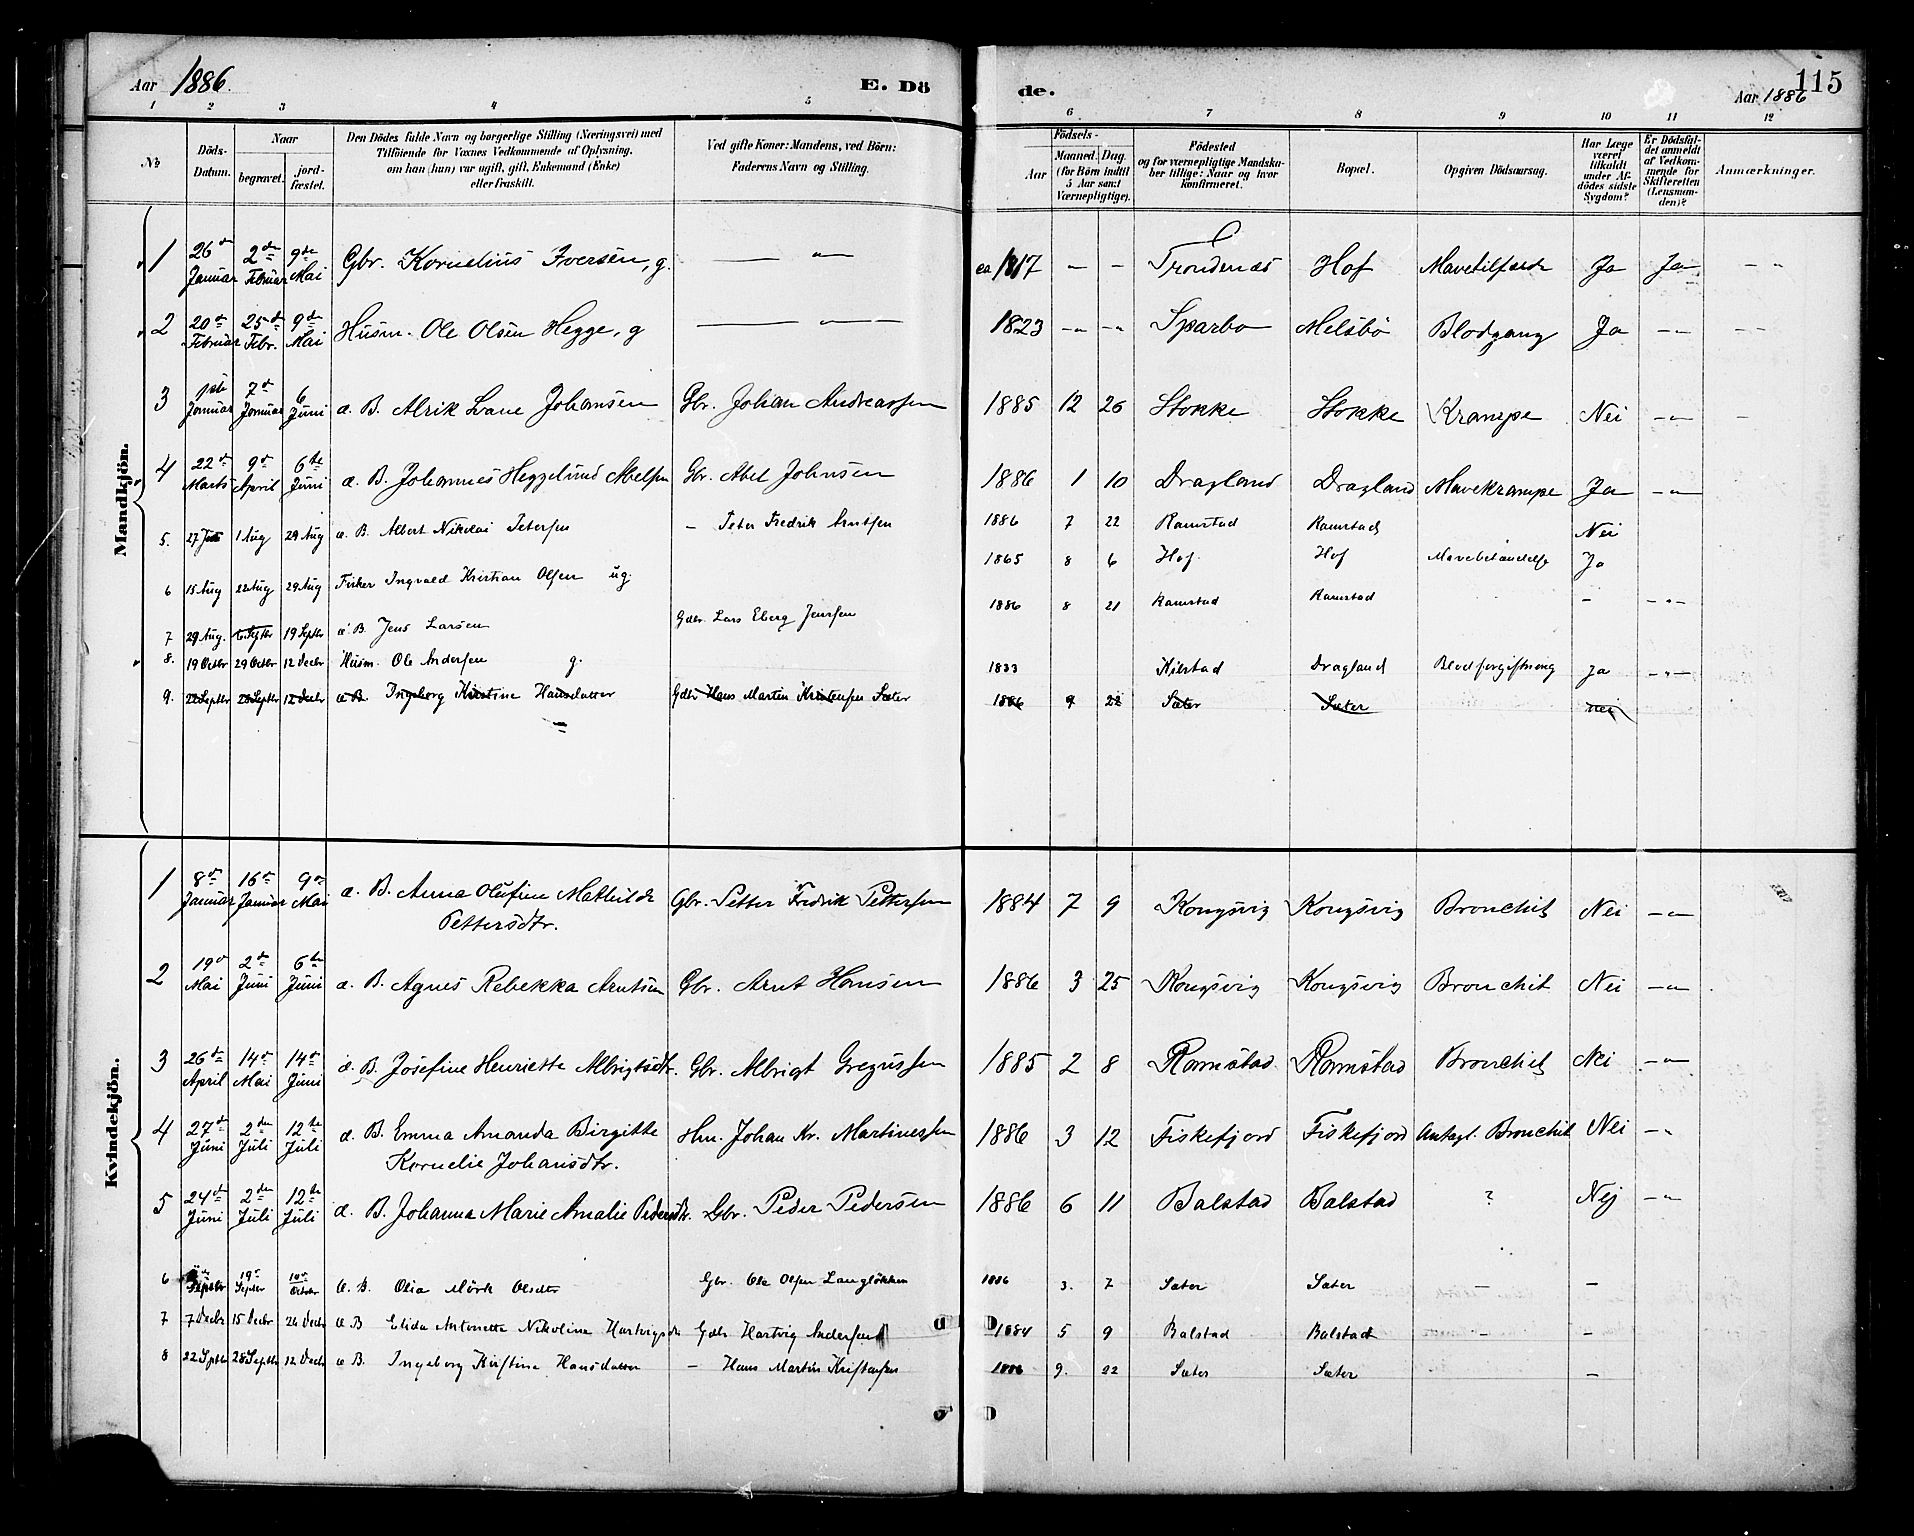 Aar 1886.
E. Dö
de.
Aar 1886
115
1 2 3 4 5
6 7 8 9 10 11 12
No
Döds-Datum.
Naar
begravet.
jord-fæstet.
Den Dödes fulde Navn og borgerlige Stilling (Næringsvei) med
Tilföiende for Voxnes Vedkommende af Oplysning,
om han (hun) var ugift, gift, Enkemand (Enke)
eller fraskilt.
Ved gifte Koner: Mandens, ved Börn:
Faderens Navn og Stilling.
Födsels-
Aar
Maaned.
Dag.
(for Börn indtil
5 Aar samt
Værnepligtige).
Födested
og for værnepligtige Mandska-
ber tillige: Naar og hvor
konfirmeret.
Bopæl.
Opgiven Dödsaarsag.
Har Læge
været
tilkaldt
under Af-
dödes sidste
Sygdom?
Er Dödsfal-
det anmeldt
af Vedkom-
mende for
Skifteretten
(Lensman-
den)?
Anmærkninger.
Mandkjön.
1 26de Januar 2den Februar 9de Mai Gbr. Kornelius Iversen, g. — " — ca 1817 - - Trondenæs Hof Mavetilfælde Ja Ja - "
2 20de Februar 25de Febr. 9de Mai Husm. Ole Olsen Hegge, g — " — 1823 -"- -"- Sparbo Melsbö Blodgang Ja -"- - -
3 1ste Januar 7de Januar 6 Juni æ. B. Alrik Lane Johansen Gbr. Johan Andreassen 1885 12 26 Stokke Stokke Krampe Nei -"- -
4 22de Marts 9de April 6te Juni æ. B. Johannes Heggelund Abelsen Gbr. Abel Johnsen 1886 1 10 Dragland Dragland Mavekrampe Ja -"-
5. 27 Juli 1 Aug 29 Aug æ. B. Albert Nikolai Petersen - Peter Fredrik Arntsen 1886 7 22 Ramstad Ramstad Nei
6 15 Aug 22 Aug 29 Aug Fisker Ingvald Kristian Olsen ug. 1865 8 6 Hof Hof Mavebetændelse Ja
7 29 Aug. 6 Septbr 19 Septbr æ B. Jens Larsen Gdbr. Lars Eberg Jenssen 1886 8 21 Ramstad Ramstad - -"-
8. 19 Octbr 29 Octbr 12 Decbr Husm. Ole Andersen g. 1833 Kilstad Dragland Blodforgiftning Ja -"-
9. 22 Septbr 28 Septbr 12 Decbr æ B. Ingeborg Kirstine Hansdatter Gdbr Hans Martin Kristensen Sæter 1886 9 22 Sæter Sæter nei
Kvindekjön.
1 8de Januar 16de Januar 9de Mai æ. B. Anna Olufine Mathilde
Pettersdtr. Gbr. Petter Fredrik Pettersen 1884 7 9 Kongsvig Kongsvig Bronchit Nei -"-
2 19de Mai 2de Juni 6te Juni æ. B. Agnes Rebekka Arntsen Gbr. Arnt Hansen 1886 3 25 Kongsvig Kongsvig Bronchit Nei -"-
3 26de April 14de Mai 14de Juni æ. B. Josefine Henriette Albrigtsdtr. Gbr. Albrigt Gregussen 1885 2 8 Ramstad Ramstad Bronchit Nei -"-
4 27de Juni 2den Juli 12te Juli æ. B. Emma Amanda Birgitte
Kornelie Johansdtr. Hm. Johan Kr. Martinessen 1886 3 12 Fiskefjord Fiskefjord Antagl. Bronchit Nei -"-
5 24de Juni 2den Juli 12te Juli æ. B. Johanna Marie Amalie Pedersdtr. Gbr. Peder Pedersen 1886 6 11 Balstad Balstad ? Nej -"-
6 Septbr 19de Septbr 10de Octobr æ. B. Olia Mörk Olsdtr Gbr. Ole Olsen Langlökken 1886 3. 7 Sæter Sæter - -
7 7 Decbr 15 Decbr 26 Decbr æ B Elida Antonette Nikoline Hartvigsdtr Gdbr Hartvig Andersen 1884 5 9 Balstad Balstad - -
8 22 Septbr 28 Septbr 12 Decbr æ B. Ingeborg Kirstine Hansdatter - Hans Martin Kristensen 1886 9. 22 Sæter Sæter -